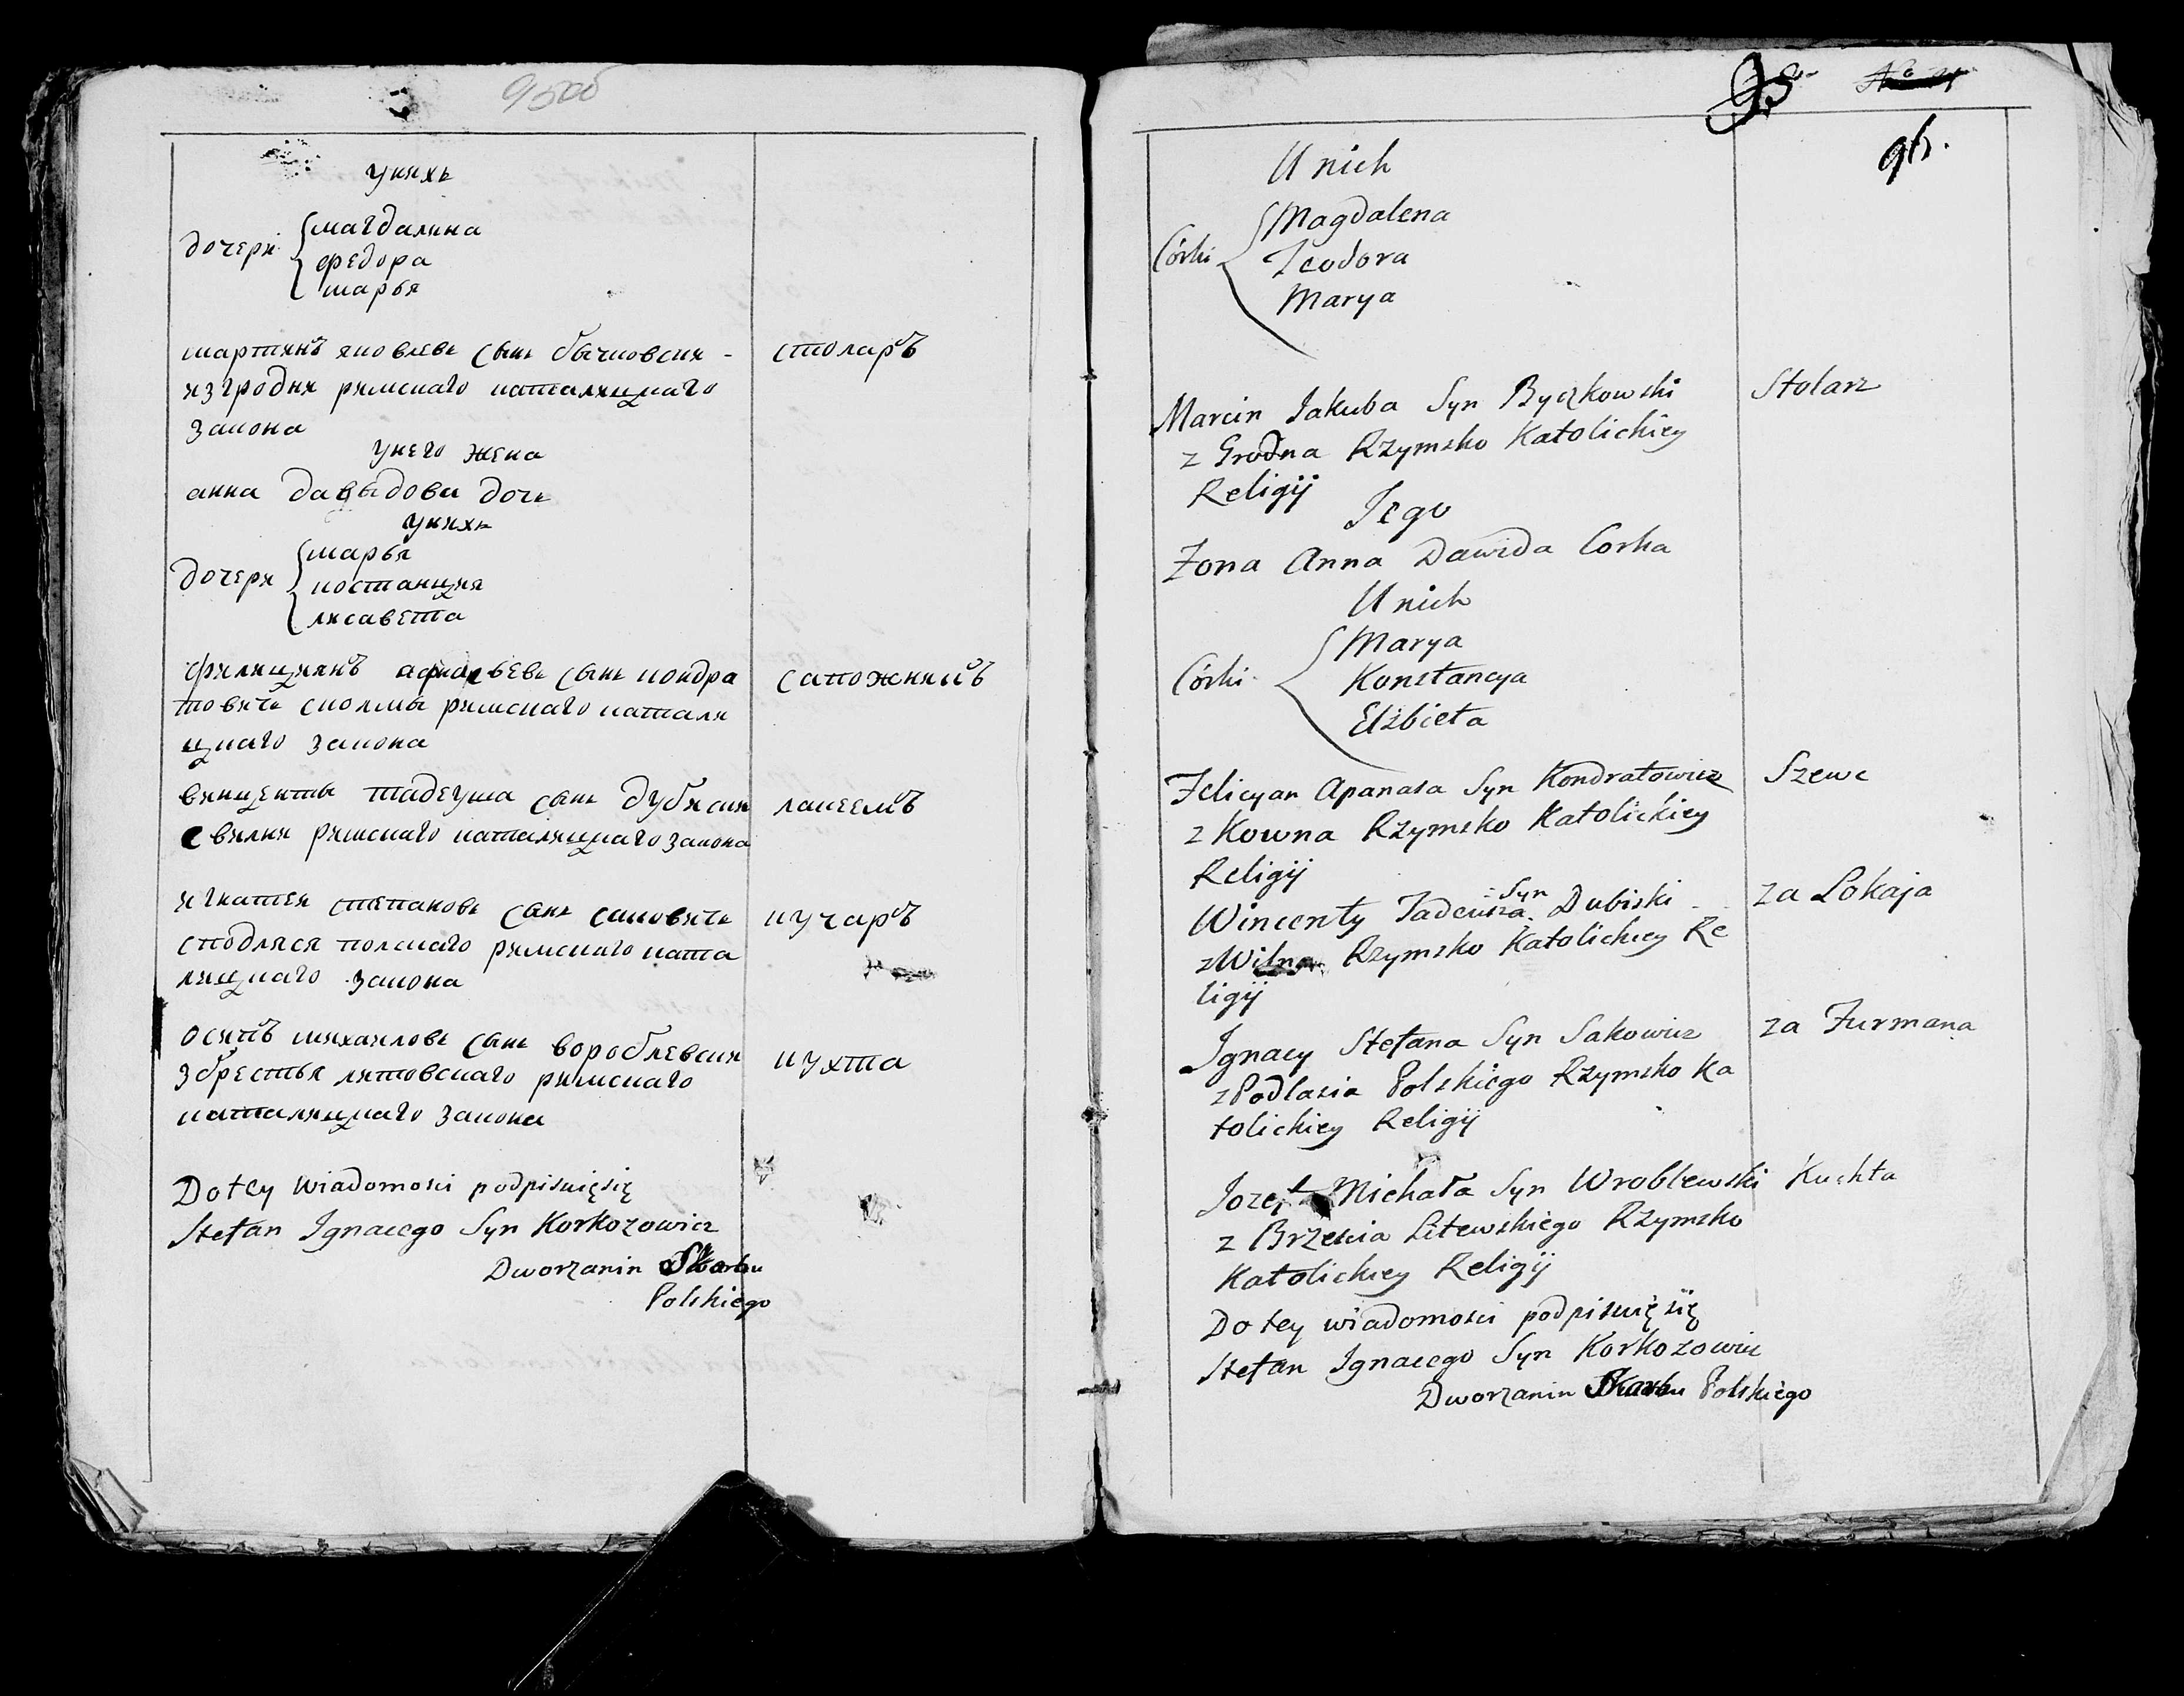 95об
унихъ
дочери
магдалина
федора
марья
мартинъ яковлевъ сынъ бычковски -
изгродни римскаго каталицкаго
закона
столаръ
унего жена
анна давыдова дочь
унихъ
дочери
марья
костанция
лисавета
филициянъ сынъ кондра
товичъ сколмы римскаго катали
цкаго закона
сапожникъ
винценты тадеуша сынъ дубиски
свилни римскаго каталицкаго закона
лакеемъ
игнатеи степановъ сынъ саковичъ
сподляся полскаго римскаго ката
лицкаго закона
кучаръ
осипъ михаиловъ сынъ вороблевски
збрестья литовскаго римскаго
каталицкаго закона
кухта
Do tey wiadomosci podpisuię się
Stefan Ignacego Syn Korkozowicz
Dworzanin Skarbu
Polskiego
96.
U nich
Córki
Magdalena
Teodora
Marya
Marcin Jakuba Syn Byczkowski
z Grodna Rzymsko Katolickiey
Religij
Stolarz
Jego
Zona Anna Dawida Corka
U nich
Córki
Marya
Konstancya
Elżbieta
Felicyan Apanasa Syn Kondratowicz
z Kowna Rzymsko Katolickiey
Religij
Szewc
Wincenty Tadeusza Syn Dubiski
z Wilna Rzymsko Katolickiey Re
ligij
za Lokaja
Ignacy Stefana Syn Sakowicz
z Podlasia Polskiego Rzymsko Ka
tolickiey Religij
za Furmana
Jozef Michała Syn Wroblewski
z Brzescia Litewskiego Rzymsko
Katolickiey Religij
Kuchta
Do tey wiadomosci podpisuię się
Stefan Ignacego Syn Korkozowicz
Dworzanin Skarbu Polskiego